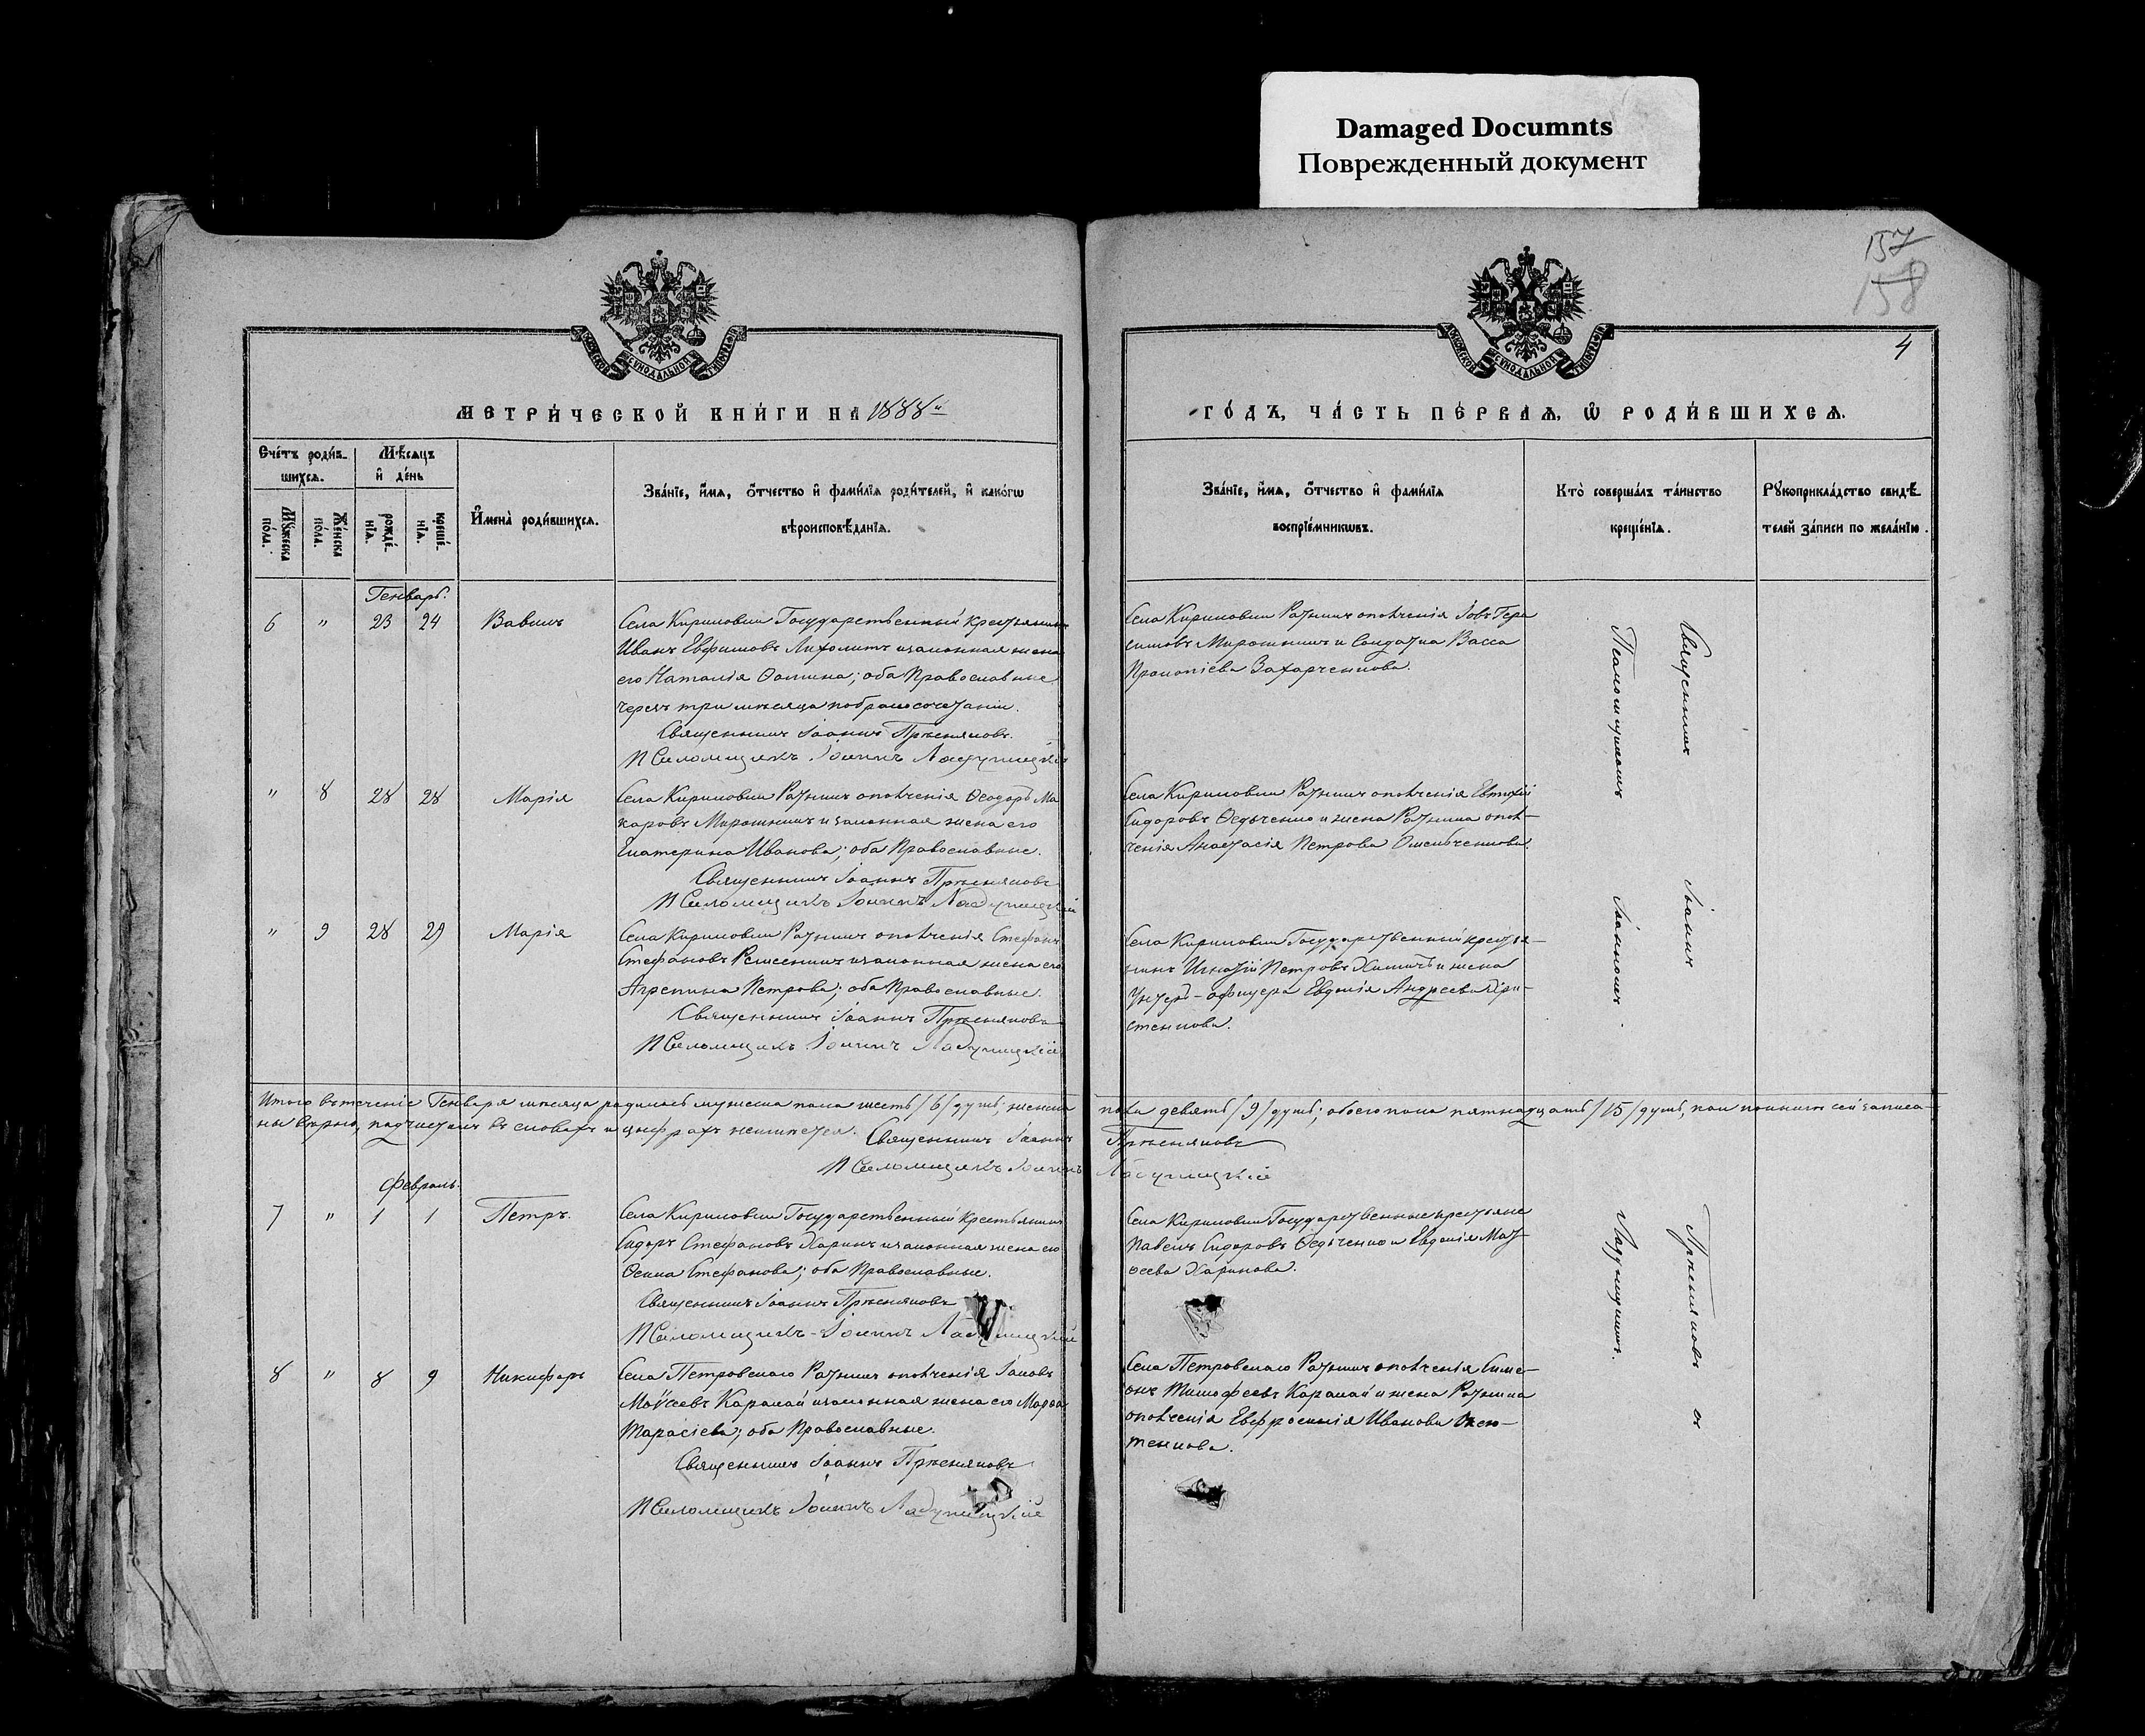 Damaged Documnts
Поврежденный документ
157
158
4
МЕТРИ́ЧЕСКОЙ КНИ́ГИ НА 1888й
ГО́ДЪ, ЧА́СТЬ ПЕ́РВАѦ, Ѡ҆ РОДИ́ВШИХСѦ.
Сче́тъ роди́в-
шихсѧ.
Мѣ́сѧцъ
и҆ де́нь
Мꙋ́жеска по́ла.
Же́нска по́ла.
рожде́-нїѧ.
креще́-нїѧ.
И҆мена̀ роди́вшихсѧ.
Зва́нїе, и҆́мѧ, ѻ҆́тчество и҆ фами́лїѧ роди́телей, и҆ како́гѡ
вѣроисповѣ́данїѧ.
Зва́нїе, и҆́мѧ, ѻ҆́тчество и҆ фами́лїѧ
воспрїе́мникѡвъ.
Кто̀ соверша́лъ та́инство
креще́нїѧ.
Рꙋкоприкла́дство свидѣ́-
телей за́писи по жела́нїю.
Генварь.
6 " 23 24 Вавилъ
Села Кириловки Государственный крестьянинъ
Иванъ Евфимовъ и законная жена
его Наталія Фомина; оба Православные
черезъ три мѣсяца по бракосочетаніи.
Священникъ Іоаннъ Прѣсняковъ.
Псаломщикъ Іоаннъ Ладухицкій
Села Кириловки Ратникъ ополченія Іовъ Гера
симовъ Мирошникъ и Солдатка Васса
Прокопіева Захарченкова.
" 8 28 28 Марія
Села Кириловки Ратникъ ополченія Ѳеодоръ Ма
каровъ Мирошникъ и законная жена его
Екатерина Иванова; оба Православные.
Священникъ Іоаннъ Прѣсняковъ
Псаломщикъ Іоаннъ Ладухицкій
Села Кириловки Ратникъ ополченія Евтихій
Сидоровъ Ѳедьченко и жена Ратника опол-
ченія Анастасія Петрова Омельченкова.
" 9 28 29 Марія
Села Кириловки Ратникъ ополченія Стефанъ
Стефановъ и законная жена его
Агрепина Петрова; оба Православные.
Священникъ Іоаннъ Прѣсняковъ
Псаломщикъ Іоаннъ Ладухицкій
Села Кириловки Государственный крестья-
нинъ Игнатій Петровъ и жена
Унтеръ-офицера Евдокія Андреева Хри-
стенкова.
Итого въ теченіе Генваря мѣсяца родилось мужеска пола шесть /6/ душъ; женска пола девять /9/ душъ; обоего пола пятнадцать /15/ душъ, кои по книгѣ сей записа-
ны вѣрно, подчистокъ въ словахъ и цифрахъ не имѣется. Священникъ Іоаннъ Прѣсняковъ
Псаломщикъ Іоаннъ Ладухицкій
Февраль.
7 " 1 1 Петръ.
Села Кириловки Государственный Крестьянинъ
Сидоръ Стефановъ Харинъ и законная жена его
Ѳекла Стефанова; оба Православные.
Священникъ Іоаннъ Прѣсняковъ
Псаломщикъ Іоаннъ Ладухицкій
Села Кириловки Государственные крестьяне
Павелъ Сидоровъ Ѳедьченко и Евдокія Мат-
ѳеева Харинова.
8 " 8 9 Никифоръ
Села Петровскаго Ратникъ ополченія Іаковъ
Моѵсеевъ Каракай и законная жена его Марѳа
Тарасіева; оба Православные.
Священникъ Іоаннъ Прѣсняковъ
Псаломщикъ Іоаннъ Ладухицкій
Села Петровскаго Ратникъ ополченія Симе-
онъ Тимофеевъ Каракай и жена Ратника
ополченія Евфросинія Иванова
тенкова.
Священникъ Іоаннъ Прѣсняковъ съ
Псаломщикомъ Іоанномъ Ладухицкимъ.